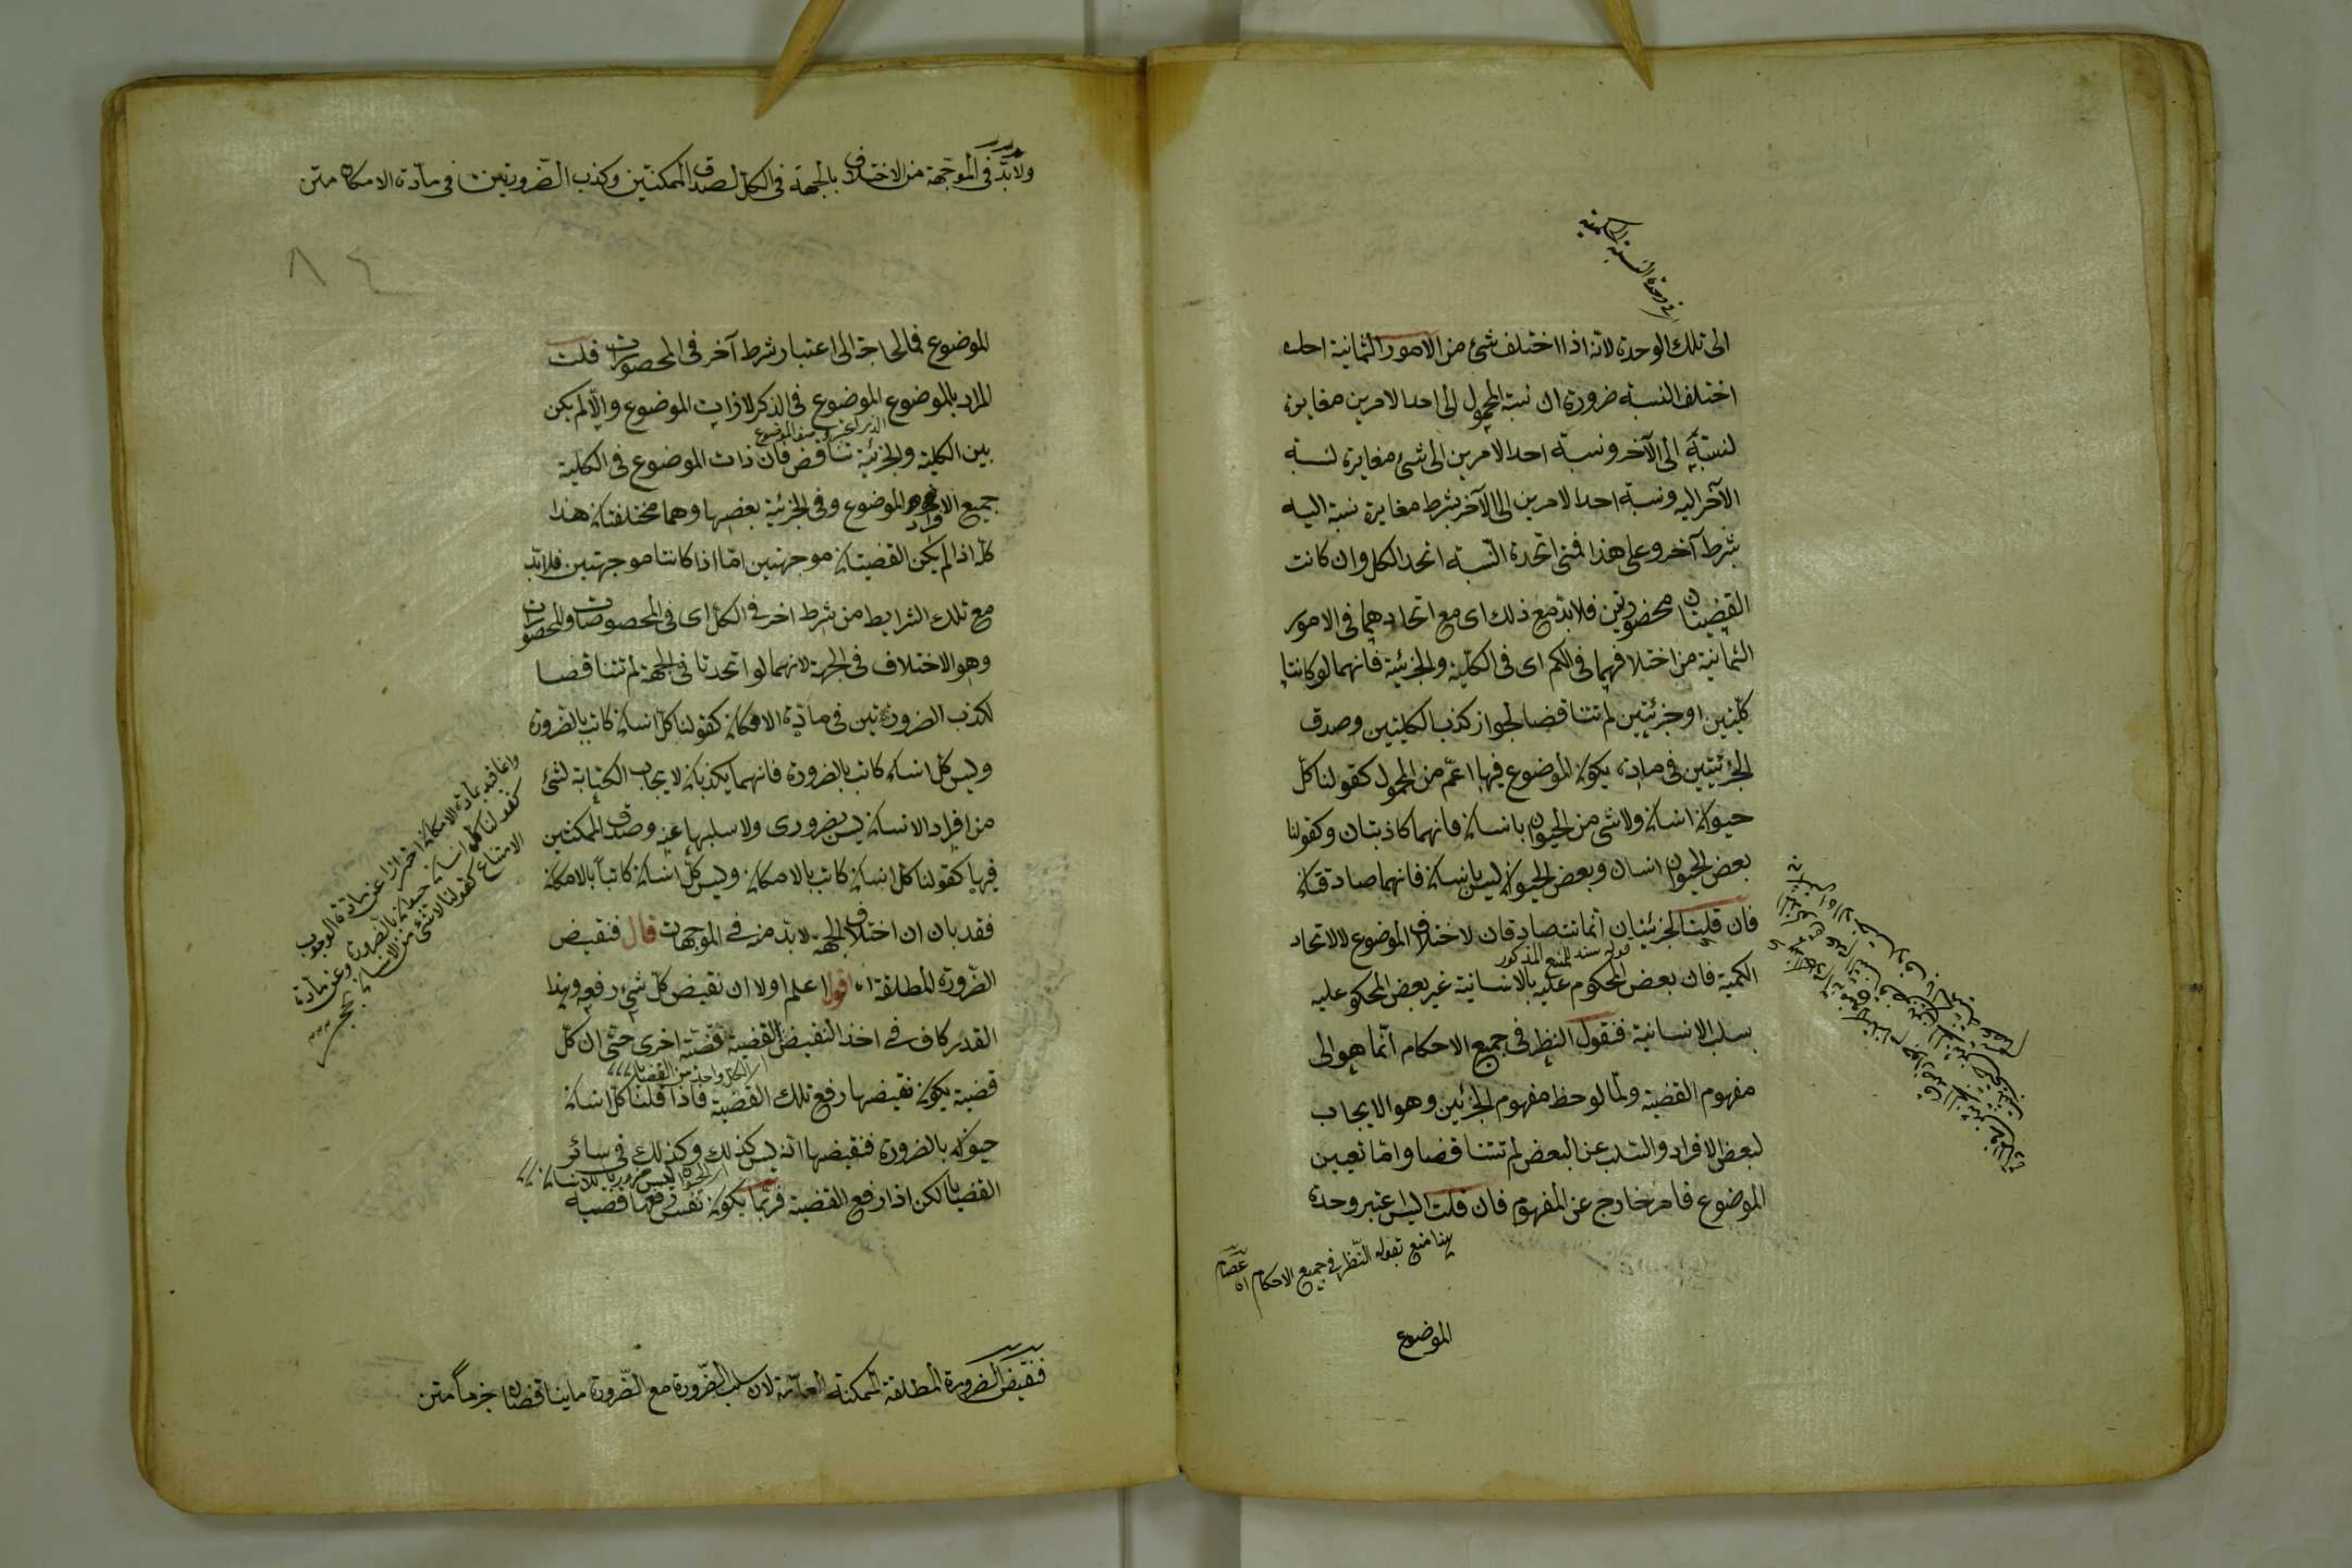 الى تلك الوحدة لانه اذا اختلف شئ من الامور الثمانية احد
اختلف النسبة ضرورة ان نسبة المحمول الى احد الامرين مغايرة
لنسبته الى الآخر ونسبة احد الامرين الى شئ مغايرة لنسبة
الآخر اليه ونسبة احد الامرين الى الآخر بشرط مغايرة نسبة اليه
بشرط آخر وعلى هذا فمتى اتحدة النسبة اتحد الكل وان كانت
القضيتان محصورتين فلابد مع ذلك اى مع اتحادهما فى الامور
الثمانية من اختلافهما فى الكم اى فى الكلية والجزئية فانهما لو كانتا
كليتين او جزئيتين لم تتناقضا لجواز كذب الكليتين وصدق
الجزئيتين فى مادة يكون الموضوع فيها اعم من المحمول كقولنا كل
حيوان انسان ولا شئ من الحيوان بانسان فانهما كاذبتان وكقولنا
بعض الحيوان انسان وبعض الحيوان ليس بانسان فانهما صادقتان
فان قلت الجزئيتان انما تتصادقان لاختلاف الموضوع لا لاتحاد
قوله سند للمنع المذكور
الكمية فان بعض المحكوم عليه بالانسانية غير بعض المحكوم عليه
بسلب الانسانية فنقول النظر فى جميع الاحكام انما هو الى
مفهوم القضية ولما لوحظ مفهوم الجزئيتين وهو الايجاب
لبعض الافراد والسلب عن البعض لم تتناقضا واما تعيين
الموضوع فامر خارج عن المفهوم فان قلت اليس اعتبر وحدة
هنا منع بقوله النظر فى جميع الاحكام اه عصام
الموضوع
ولابد فى الموجهة من الاختلاف بالجهة فى الكل لصدق الممكنتين وكذب الضروريتين فى مادة الامكان متن
٨٤
الموضوع فما الحاجة الى اعتبار شرط آخر فى المحصورات قلت
المراد بالموضوع الموضوع فى الذكر لا ذات الموضوع والا لم يكن
بين الكلية والجزئية تناقض فان ذات الموضوع فى الكلية
جميع الافراد الموضوع وفى الجزئية بعضها وهما مختلفتان هذا
كله اذا لم يكن القضيتان موجهتين اما اذا كانتا موجهتين فلابد
مع تلك الشرايط من شرط اخر فى الكل اى فى المخصوصات والمحصورات
وهو الاختلاف فى الجهة لانهما لو اتحدتا فى الجهة لم تتناقضا
لكذب الضرورتين فى مادة الامكان كقولنا كل انسان كاتب بالضرورة
وليس كل انسان كاتب بالضرورة فانهما يكذبان لا يجاب الكتابة لشئ
من افراد الانسان ليس بضرورى ولا سلبها عنه وصدق الممكنتين
فيها كقولنا كل انسان كاتب بالامكان وليس كل انسان كاتبا بالامكان
فقد بان ان اختلاف الجهة لابد منه فى الموجهات قال فنقيض
الضرورة المطلقة اه اقول اعلم اولا ان نقيض كل شئ رفعه وهذا
القدر كاف فى اخذ النقيض القضية قضية اخرى حتى ان كل
اى لكل واحد من القضايا
قضية يكون نقيضها رفع تلك القضية فاذا قلنا كل انسان
حيوان بالضرورة فنقيضها انه ليس كذلك وكذلك فى سائر
اى الحيوان ليس ضروريا للانسان
القضيا لكن اذا رفع القضية فربما يكون نفس رفعها قضية
وانما قيد بمادة الامكان احترازا عن مادة الوجوب
كقولنا كل انسان حيوان بالضرورة وعن مادة
الامتناع كقولنا لا شئ من الانسان بحجر
فنقيض الضرورة المطلقة الممكنة العامة لان سلب الضرورة مع الضرورة مما يتناقضان جزما متن